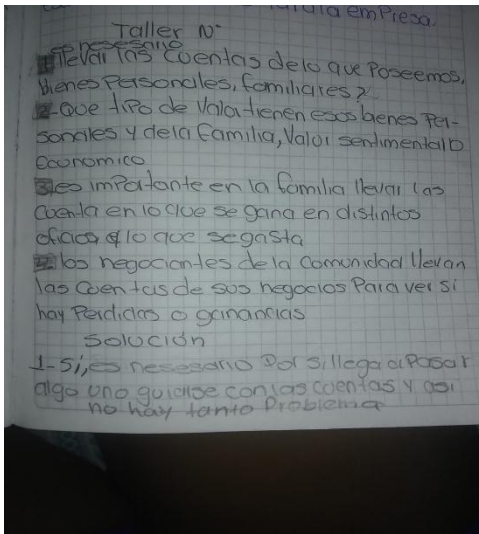 la empresa.
Taller N°
es nesesario
1 llevar las cuentas de lo que poseemos,
bienes Personales, familiares?
2-que tipo de valor tienen esos bienes Per-
sonales y dela familia, valor sentimental o
economico
3 es importante en la familia llevar las
cuenta en lo que se gana en distintos
oficios y lo que se gasta
los negociantes de la comunidad llevan
las cuentas de sus negocios Para ver si
hay Perdidas o ganancias
Solución
1-Si, es nesesario Por si llega a Pasar
algo uno guiarse con las cuentas y asi
no hay tanto Problema